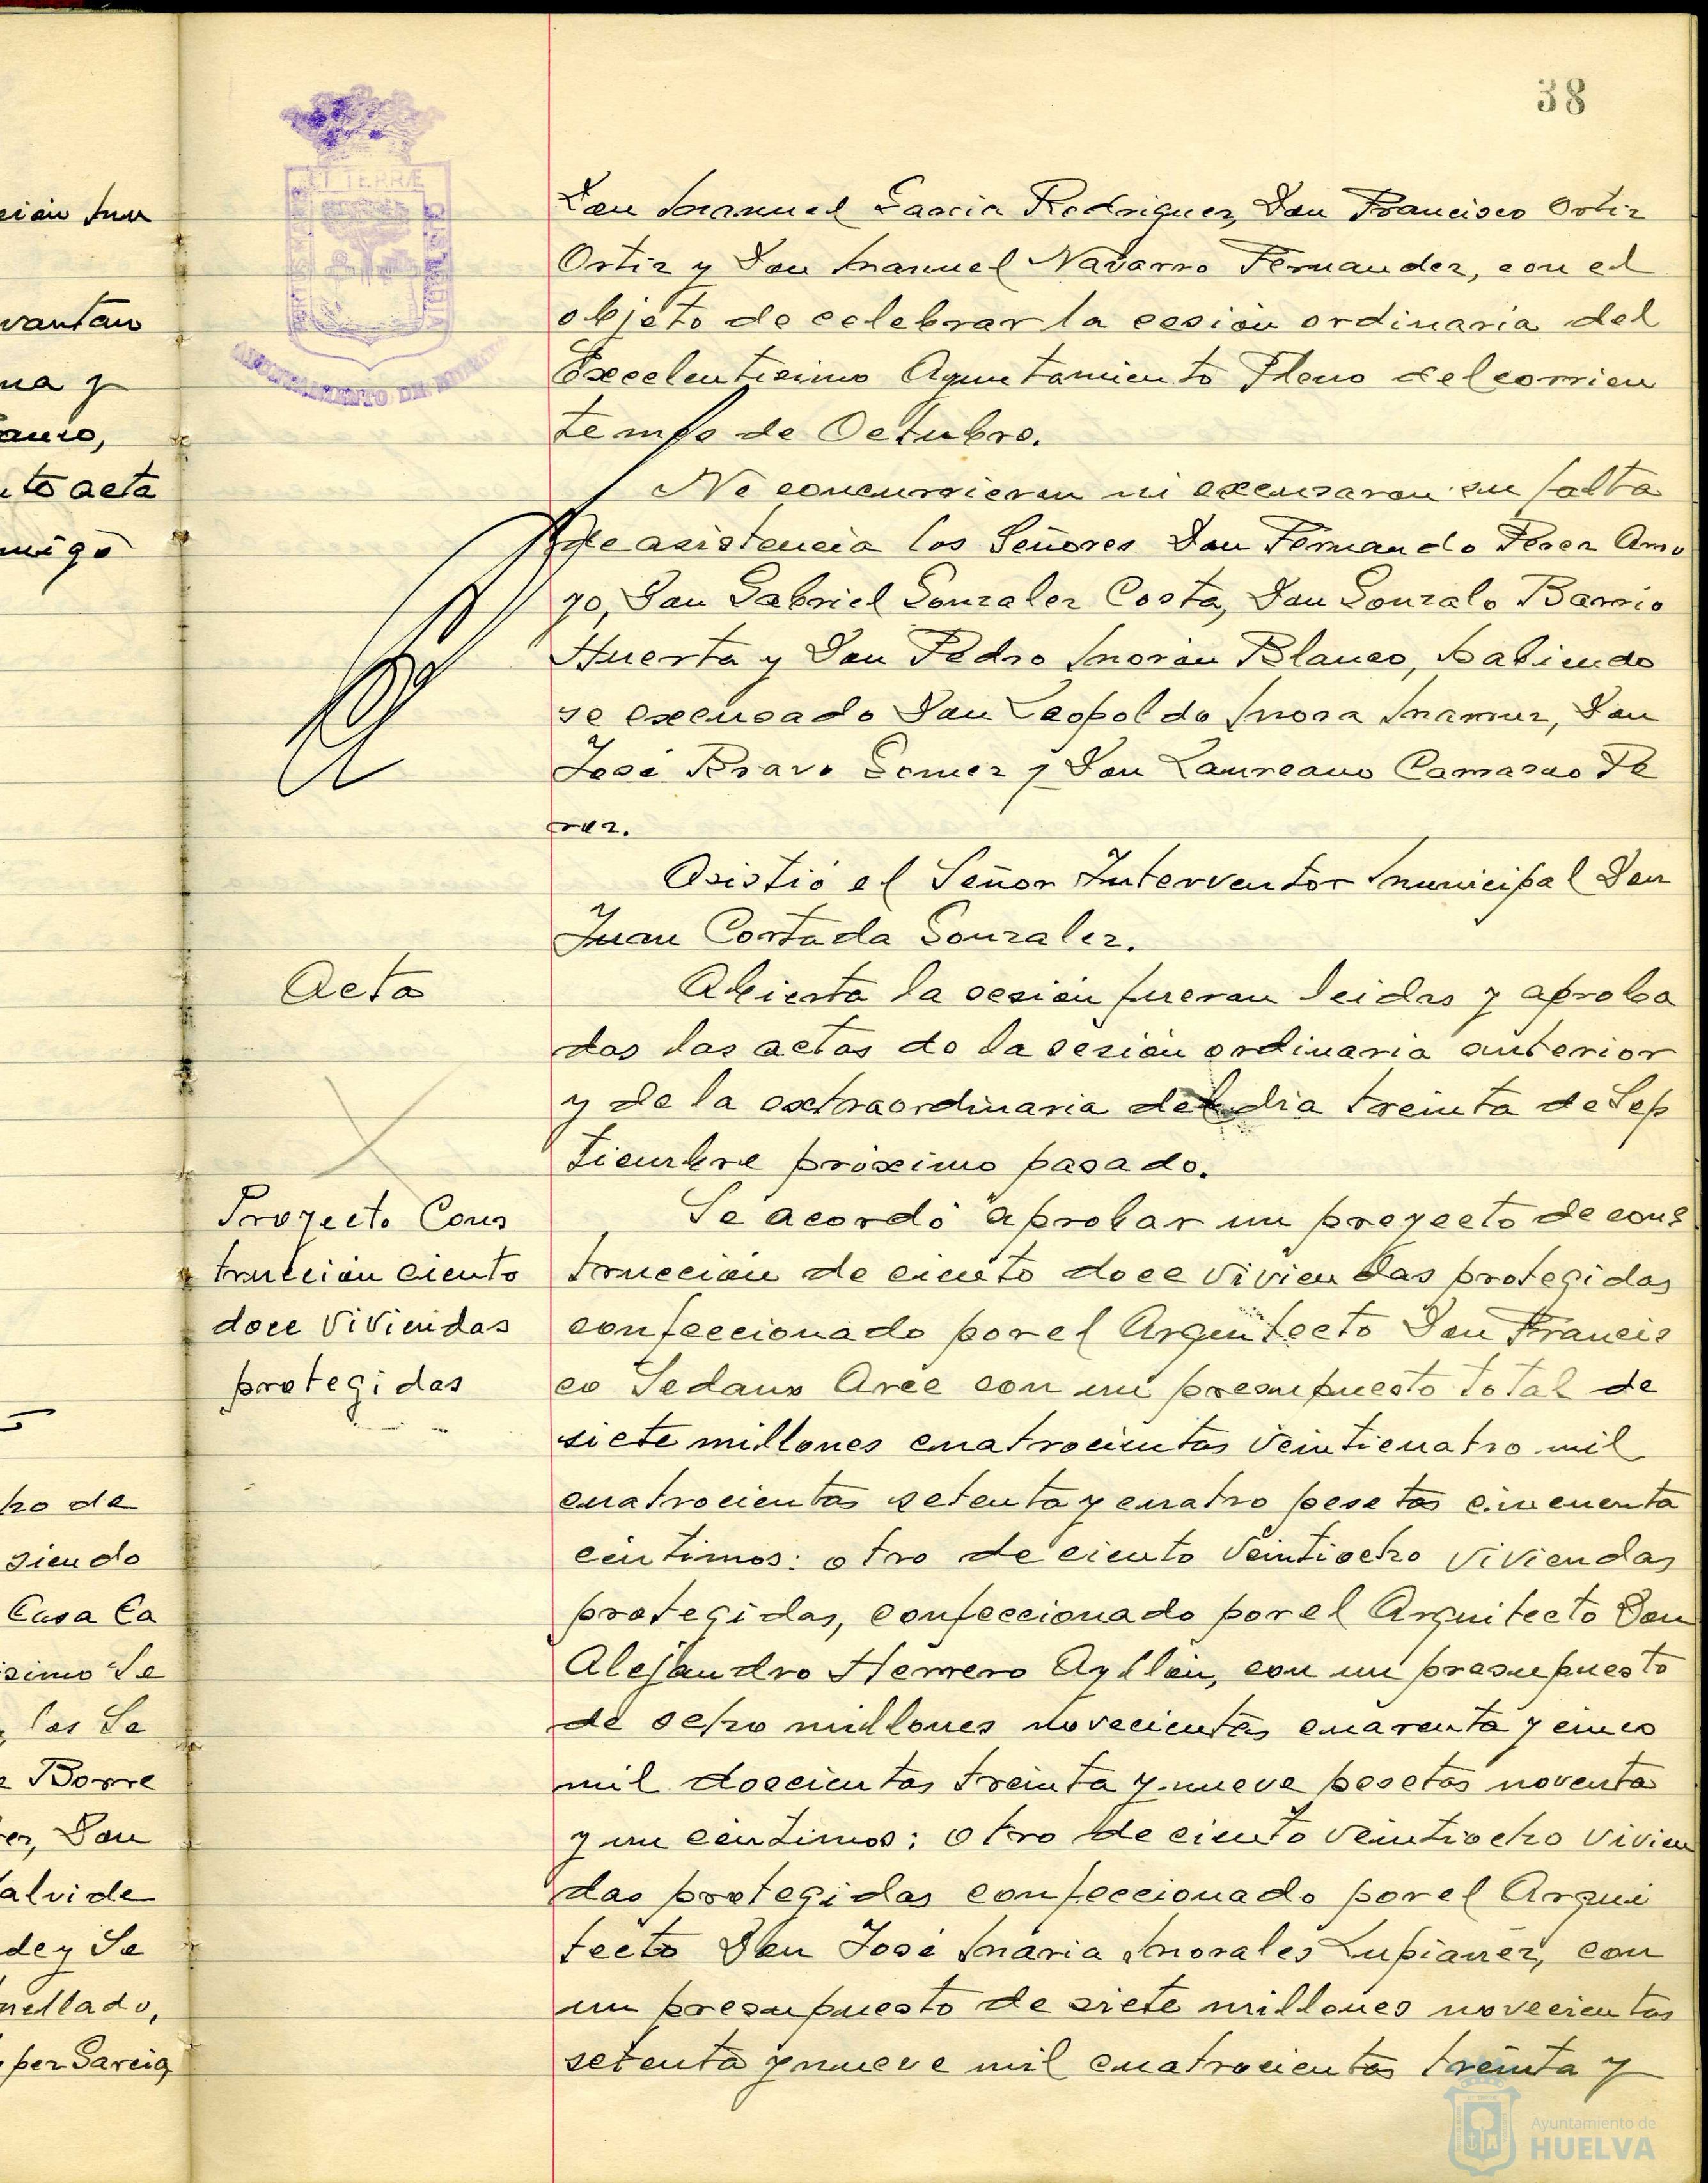 38
ET TERRÆ
PORTUS MARIS
AYUNTAMIENTO DE HUELVA
Don Manuel Garcia Rodriguez, Don Francisco Ortiz
Ortiz y Don Manuel Navarro Fernandez, con el
objeto de celebrar la sesión ordinaria del
Excelentisimo Ayuntamiento Pleno del corrien
te mes de Octubre.
No concurrieron ni excusaron su falta
de asistencia los Señores Don Fernando Perez Amo
yo, Don Gabriel Gonzalez Costa, Don Gonzalo Barrio
Huerta y Don Pedro Morón Blanco, habiendo
se excusado Don Leopoldo Mora Don
José Bravo Gomez y Don Laureano Camacho Pe
rez.
Asistió el Señor Interventor Municipal Don
Juan Cortada Gonzalez.
Acta
Abierta la sesión fueron leidas y aproba
das las actas de la sesión ordinaria anterior
y de la extraordinaria del dia treinta de Sep
tiembre próximo pasado.
Proyecto Cons
trucción ciento
doce viviendas
protegidas
Se acordó aprobar un proyecto de cons
trucción de ciento doce viviendas protegidas
confeccionado por el Arquitecto Don Francis
co Sedano Arce con un presupuesto total de
siete millones cuatrocientas veinticuatro mil
cuatrocientas setenta y cuatro pesetas cincuenta
céntimos: otro de ciento veintiocho viviendas
protegidas, confeccionado por el Arquitecto Don
Alejandro Herrero Ayllón, con un presupuesto
de ocho millones novecientas cuarenta y cinco
mil doscientas treinta y nueve pesetas noventa
y un céntimos; otro de ciento veintiocho vivien
das protegidas confeccionado por el Arqui
tecto Don José Maria Morales Lupiañez, con
un presupuesto de siete millones novecientas
setenta y nueve mil cuatrocientas treinta y
vantan
na y
to acta
migo
ho de
siendo
Casa Ca
simo Se
los Se
Borre
ez, Don
alvide
de y Se
mellado,
per Garcia,
Ayuntamiento de
HUELVA